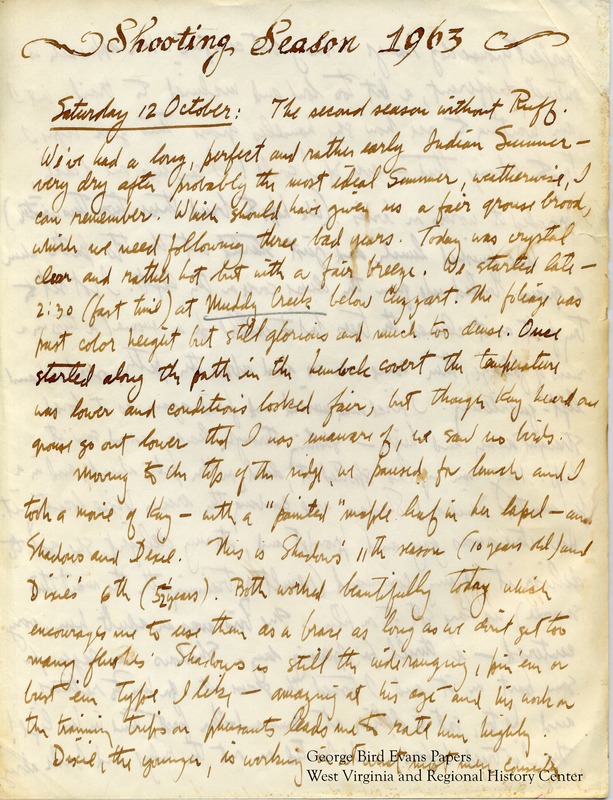 Shooting Season 1963
Saturday 12 October: The second season without Ruff.
We've had a long, perfect and rather early Indian Summer —
very dry after probably the most ideal Summer, weatherwise, I
can remember. Which should have given us a fair grouse brood,
which we need following three bad years. Today was crystal
clear and rather hot but with a fair breeze. We started late —
2:30 (fast time) at Muddy Creek below Cuzzart. The foliage was
past color height but still glorious and much too dense. Once
started along the path in the hemlock covert the temperature
was lower and conditions looked fair, but though Kay heard one
grouse go out lower that I was unaware of, we saw no birds.
Moving to the top of the ridge, we paused for lunch and I
took a movie of Kay — with a "painted" maple leaf in her lapel — and
Shadows and Dixie. This is Shadows' 11th season (10 years old) and
Dixie's 6th (5½ years). Both worked beautifully today which
encourages me to use them as a brace as long as we don't get too
many flushes. Shadows is still the wide ranging, pin 'em or
bust 'em type I like — amazing at his age and his work on
the training trips on pheasants leads me to rate him highly.
Dixie, the younger, is working at what most men consider
George Bird Evans Papers
West Virginia and Regional History Center